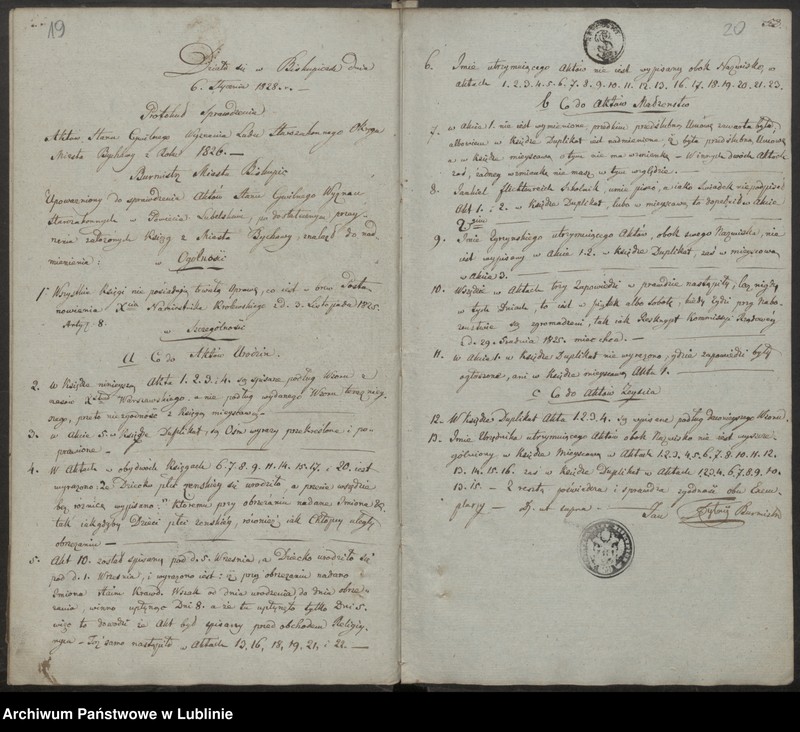 19
Działo się w Biskupicach dnia
6. Stycznia 1828.r. —
Protokuł Sprawdzenia
Aktów Stanu Cywilnego Wyznania Ludu Starozakonnego Okręgu
Miasta Bychawy z Roku 1826. —
Burmistrz Miasta Biskupic
Upoważniony do sprawdzenia Aktów Stanu Cywilnego Wyznań
Starozakonnych w Powiecie Lubelskim, po dostatecznym przey-
rzeniu założonych Ksiąg z Miasta Bychawy, znalazł do nad
mienienia: w Ogolności
1. Wszystkie Księgi nie posiadają trwałą Oprawę, co iest - brew Posta-
nowienia Xcia Namiestnika Krolewskiego z d. 3. Listopada 1825.
Artyk: 8.
w Szczególności
A Co do Aktów Urodzin.
2. w Książce ninieyszey Akta 1. 2. 3. 4. są spisane podług Wzoru z
czasów Xstwa Warszawskiego, a nie podług wydanego Wzoru teraźniey-
szego, przeto niezgodność z Księgą mieyscową.—
3. w Akcie 5. w Książce Duplikat, są Ośm wyrazy przekréślone i po-
prawione. —
4. W Aktach w obydwoch Księgach 6. 7. 8. 9. 11. 14. 15. 17. i 20. iest
wyrażono: że Dziecko płci żenskiey się urodziło a przecie wszędzie
bez różnicy wypisano: " Ktoremu przy obrzezaniu nadane Imiona &c.
tak iak gdyby Dzieci płci żenskiey, rownież iak Chłopcy uległy
obrzezaniu —
5. Akt 10. został spisany pod d. 5. Września, a Dziecko urodziło się
pod d. 1. Września, i wyrażono iest: że przy obrzezaniu nadano
Imiona Srul Krawd. Wszak od dnia urodzenia, do dnia obrze-
zania, winno upłynąć Dni 8. a że tu upłynęło tylko Dni 5.
więc to dowodzi że Akt był spisany przed obchodem Religiy-
nym — Toż samo nastąpiło w Aktach 13, 16, 18, 19. 21, i 22. —
20
6. Imie utrzymuiącego Aktów nie iest wypisany obok Nazwiska, w
aktach 1. 2. 3. 4. 5. 6. 7. 8. 9. 10. 11. 12. 13. 16. 17. 18. 19. 20. 21. 23.
B Co do Aktów Małżenstw
7. w Akcie 1. nie iest wymieniono przed kim przedślubna Umowa zawarta była,
albowiem w Książce Duplikat iest nadmieniono, że była przedślubna Umowa
a w książce mieyscowey o tym nie ma wzmianki — W innych dwoch Aktach
zaś, żadney wzmianki nie masz, w tym względzie. —
8. Jankiel Szkolnik, umie pisać, a iako Swiadek nie podpisał
Akt 1. i 2. w Książce Duplikat, lubo w mieyscowey to dopełnił w Akcie
9. Imie Żyrzynskiego utrzymuiącego Aktów, obok swego Nazwiska, nie
iest wypisany w Akcie 1. 2. w Książce Duplikat, zaś w mieyscowey
w Akcie 3. —
10. Wszędzie w Aktach tory Zapowiedzi w prawdzie nastąpiły, lecz między
w tych Dniach, to iest w piątek albo Sobotę, kiedy Żydzi przy Nabo-
żenstwie są zgromadzeni, tak iak Reskrypt Kommissyi Rządowey
z d. 29. Grudnia 1825. mieć chce. —
11. w Akcie 1. w Książce Duplikat nie wyrażono, gdzie zapowiedzi były
ogłoszone, ani w Książce mieyscowey Akta 1. —
C Co do Aktów Zeyścia
12. W Książce Duplikat Akta 1. 2. 3. 4. są wpisane podług dawnieyszego Wzoru.
13. Imie Urzędnika utrzymuiącego Aktów obok Nazwiska nie iest wyszcze-
gólniony w Książce Mieyscowey w Aktach 1. 2. 3. 4. 5. 6. 7. 8. 10. 11. 12.
13. 14. 15. 16. zaś w Książce Duplikat w Aktach 1. 2. 3. 4. 6. 7. 8. 9. 10.
13. 15. — Z reszty poświadcza i sprawdza zgodność obu Exem-
plarzy — Dj. ut supra — Jan Burmistrz
Archiwum Państwowe w Lublinie